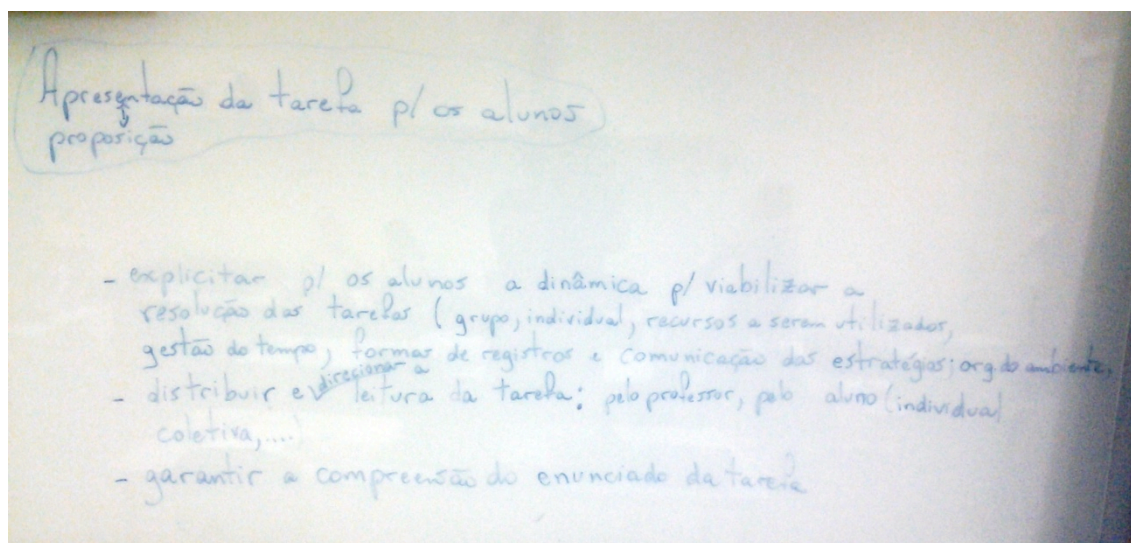 Apresentação da tarefa p/ os alunos
↓
proposição
- explicitar p/ os alunos a dinâmica p/ viabilizar a
resolução das tarefas (grupo, individual, recursos a serem utilizados,
gestão do tempo, formas de registros e comunicação das estratégias; org. do ambiente,
- distribuir e direcionar a leitura da tarefa: pelo professor, pelo aluno (individual
coletiva,....)
- garantir a compreensão do enunciado da tarefa